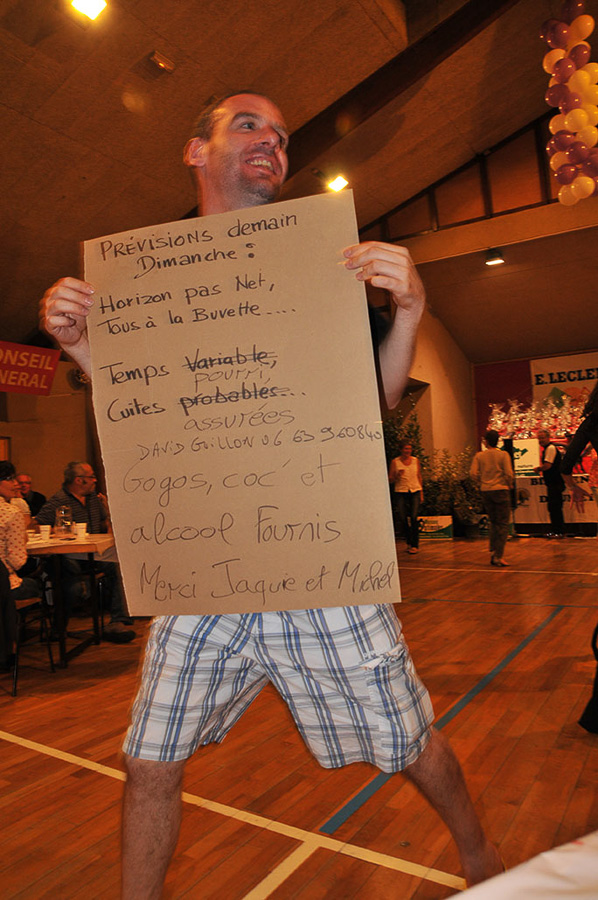 PRÉVISIONS demain
Dimanche :
Horizon pas Net,
Tous à la Buvette....
Temps Variable,
pourri
Cuites probables...
assurées
DAVID GUILLON 06 63 960840
Gogos, coc' et
alcool Fournis
Merci Jaquie et Michel
CONSEIL
GENERAL
E.LECLE